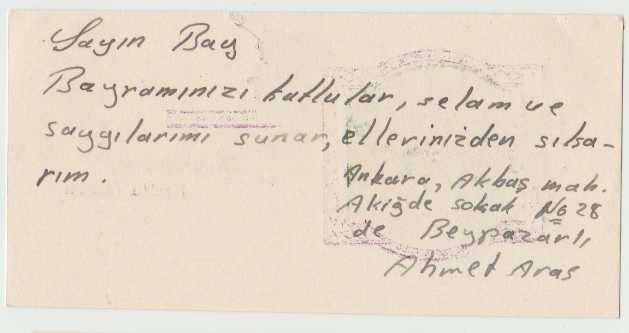 Sayın Bay
Bayramınızı kutlular, selam ve
saygılarımı sunar, ellerinizden sıksa-
rım.
Ankara, Akbaş mah.
Akiğde sokak No 28
de Beypazarlı
Ahmet Aras